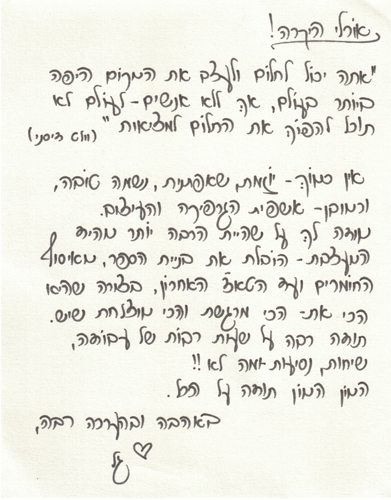 אורלי היקרה!
"אתה יכול לחלום ולעצב את המקום היפה
ביותר בעולם, אך ללא אנשים - לעולם לא
תוכל להפוך את החלום למציאות" (וולט דיסני)
אין כמוך - יוזמת, שאפתנית, נשמה טובה,
וכמובן - אשפית הגרפיקה והעיצוב.
מודה לך על שהיית הרבה יותר מהיותך
המעצבת - הובלת את בניית הספר, מאיסוף
החומרים ועד הטאצ' האחרון, בצורה שהיא
הכי את - הכי מרגשת והכי מוצלחת שיש.
תודה רבה על שעות רבות של עבודה,
שיחות, נסיעות ומה לא!!
המון המון תודה על הכל.
באהבה ובהערכה רבה,
גל